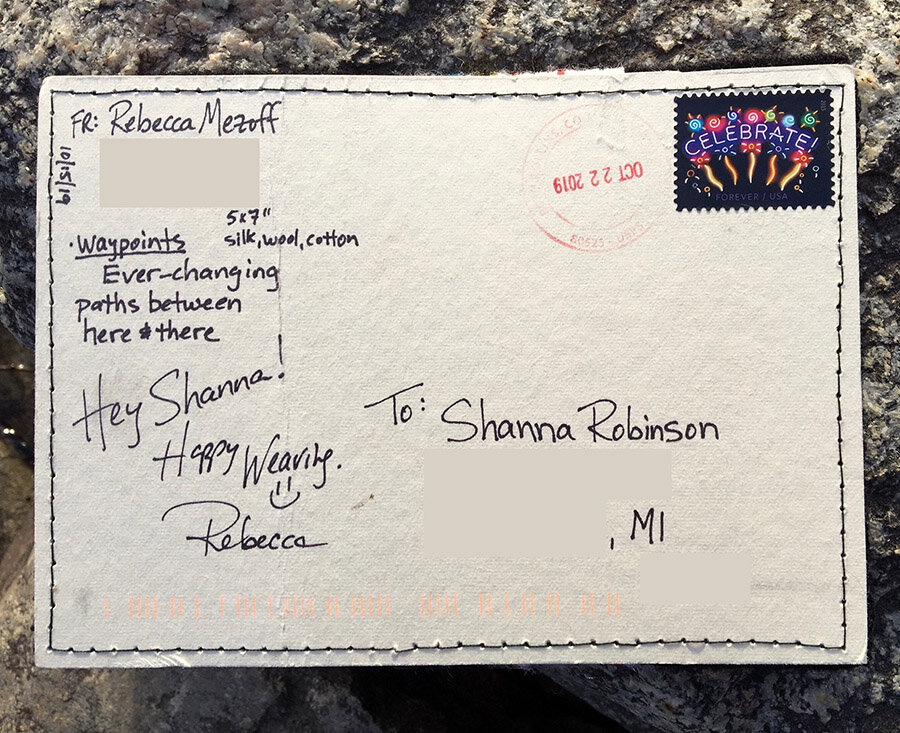 FR: Rebecca Mezoff
10/15/19
5x7"
silk, wool, cotton
·Waypoints
Ever-changing
paths between
here & there
Hey Shanna!
Happy Weaving.
Rebecca
To: Shanna Robinson
, MI
OCT 22 2019
80523 - USPS
CELEBRATE!
FOREVER / USA